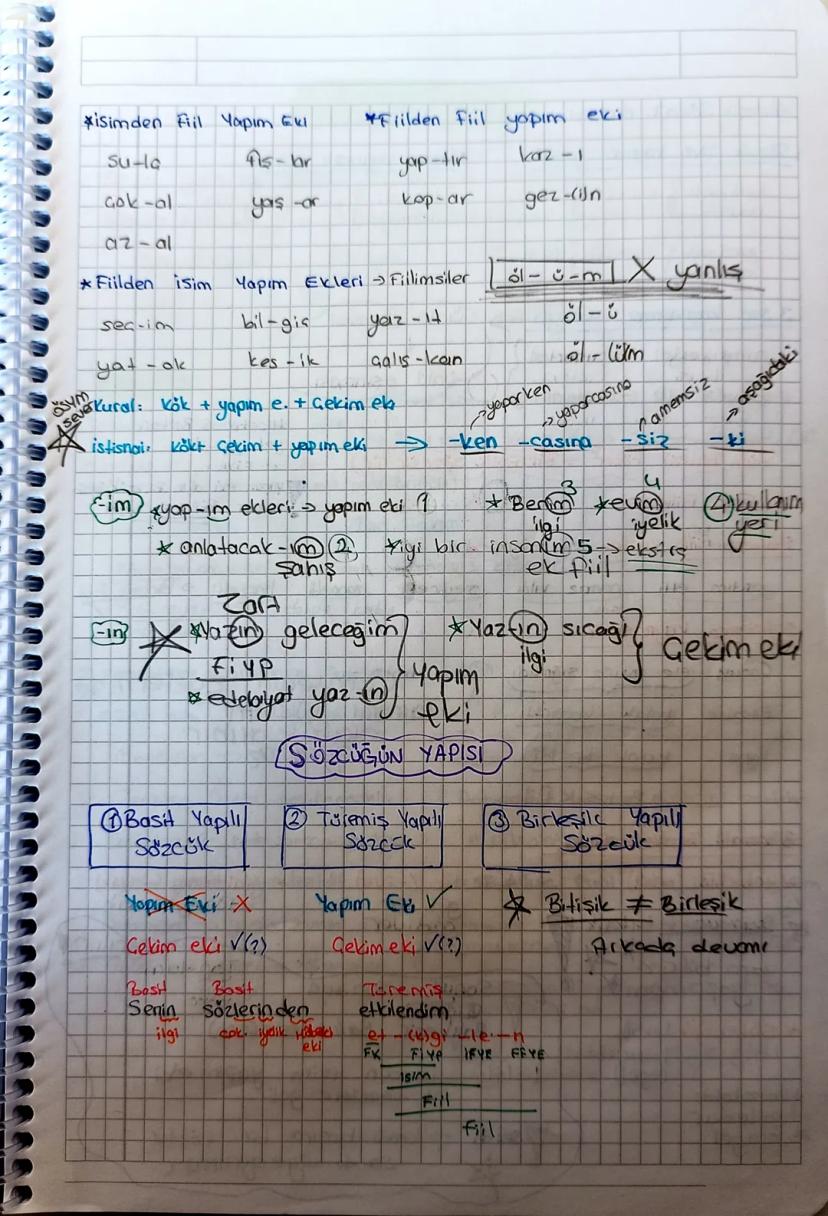 *isimden Fiil Yapım Eki *Fiilden Fiil yapım eki
su-la fış-kır yap-tır kaz-ı
çok-al yaş-ar kop-ar gez-(i)n
az-al
*Fiilden isim Yapım Ekleri → Fiilimsiler öl-ü-m X yanlış
seç-im bil-giç yaz-ıt öl-ü
yat-ak kes-ik çalış-kan öl-(ü)m
ÖSYM sever
Kural: kök + yapım e. + Çekim ek
→yaparken →yaparcasına →namemsiz →aşağıdaki
istisnai: kök+ Çekim + yapım eki → -ken -casına -siz -ki
-im *yap-ım ekleri → yapım eki 1 *Benim 3 *evim 4 (4) kullanım yeri
ilgi iyelik
*anlatacak-ım (2) *iyi bir insanım 5 → ekstra
şahıs ek fiil
Zarf
-ın *Yazın geleceğim *Yaz(ın) sıcağı Çekim eki
FiYP ilgi
*edebiyat yaz-ın yapım eki
SÖZCÜĞÜN YAPISI
① Basit Yapılı Sözcük ② Türemiş Yapılı Sözcük ③ Birleşik Yapılı Sözcük
Yapım Eki X Yapım Eki ✓ * Bitişik ≠ Birleşik
Çekim eki ✓(?) Çekim eki ✓(?) Arkada devamı
Basit Basit Türemiş
Senin sözlerinden etkilendim
ilgi çok. iyelik eki et-(k)gi-le-n
FK FİYP İFYE FFYE
isim
Fiil
fiil